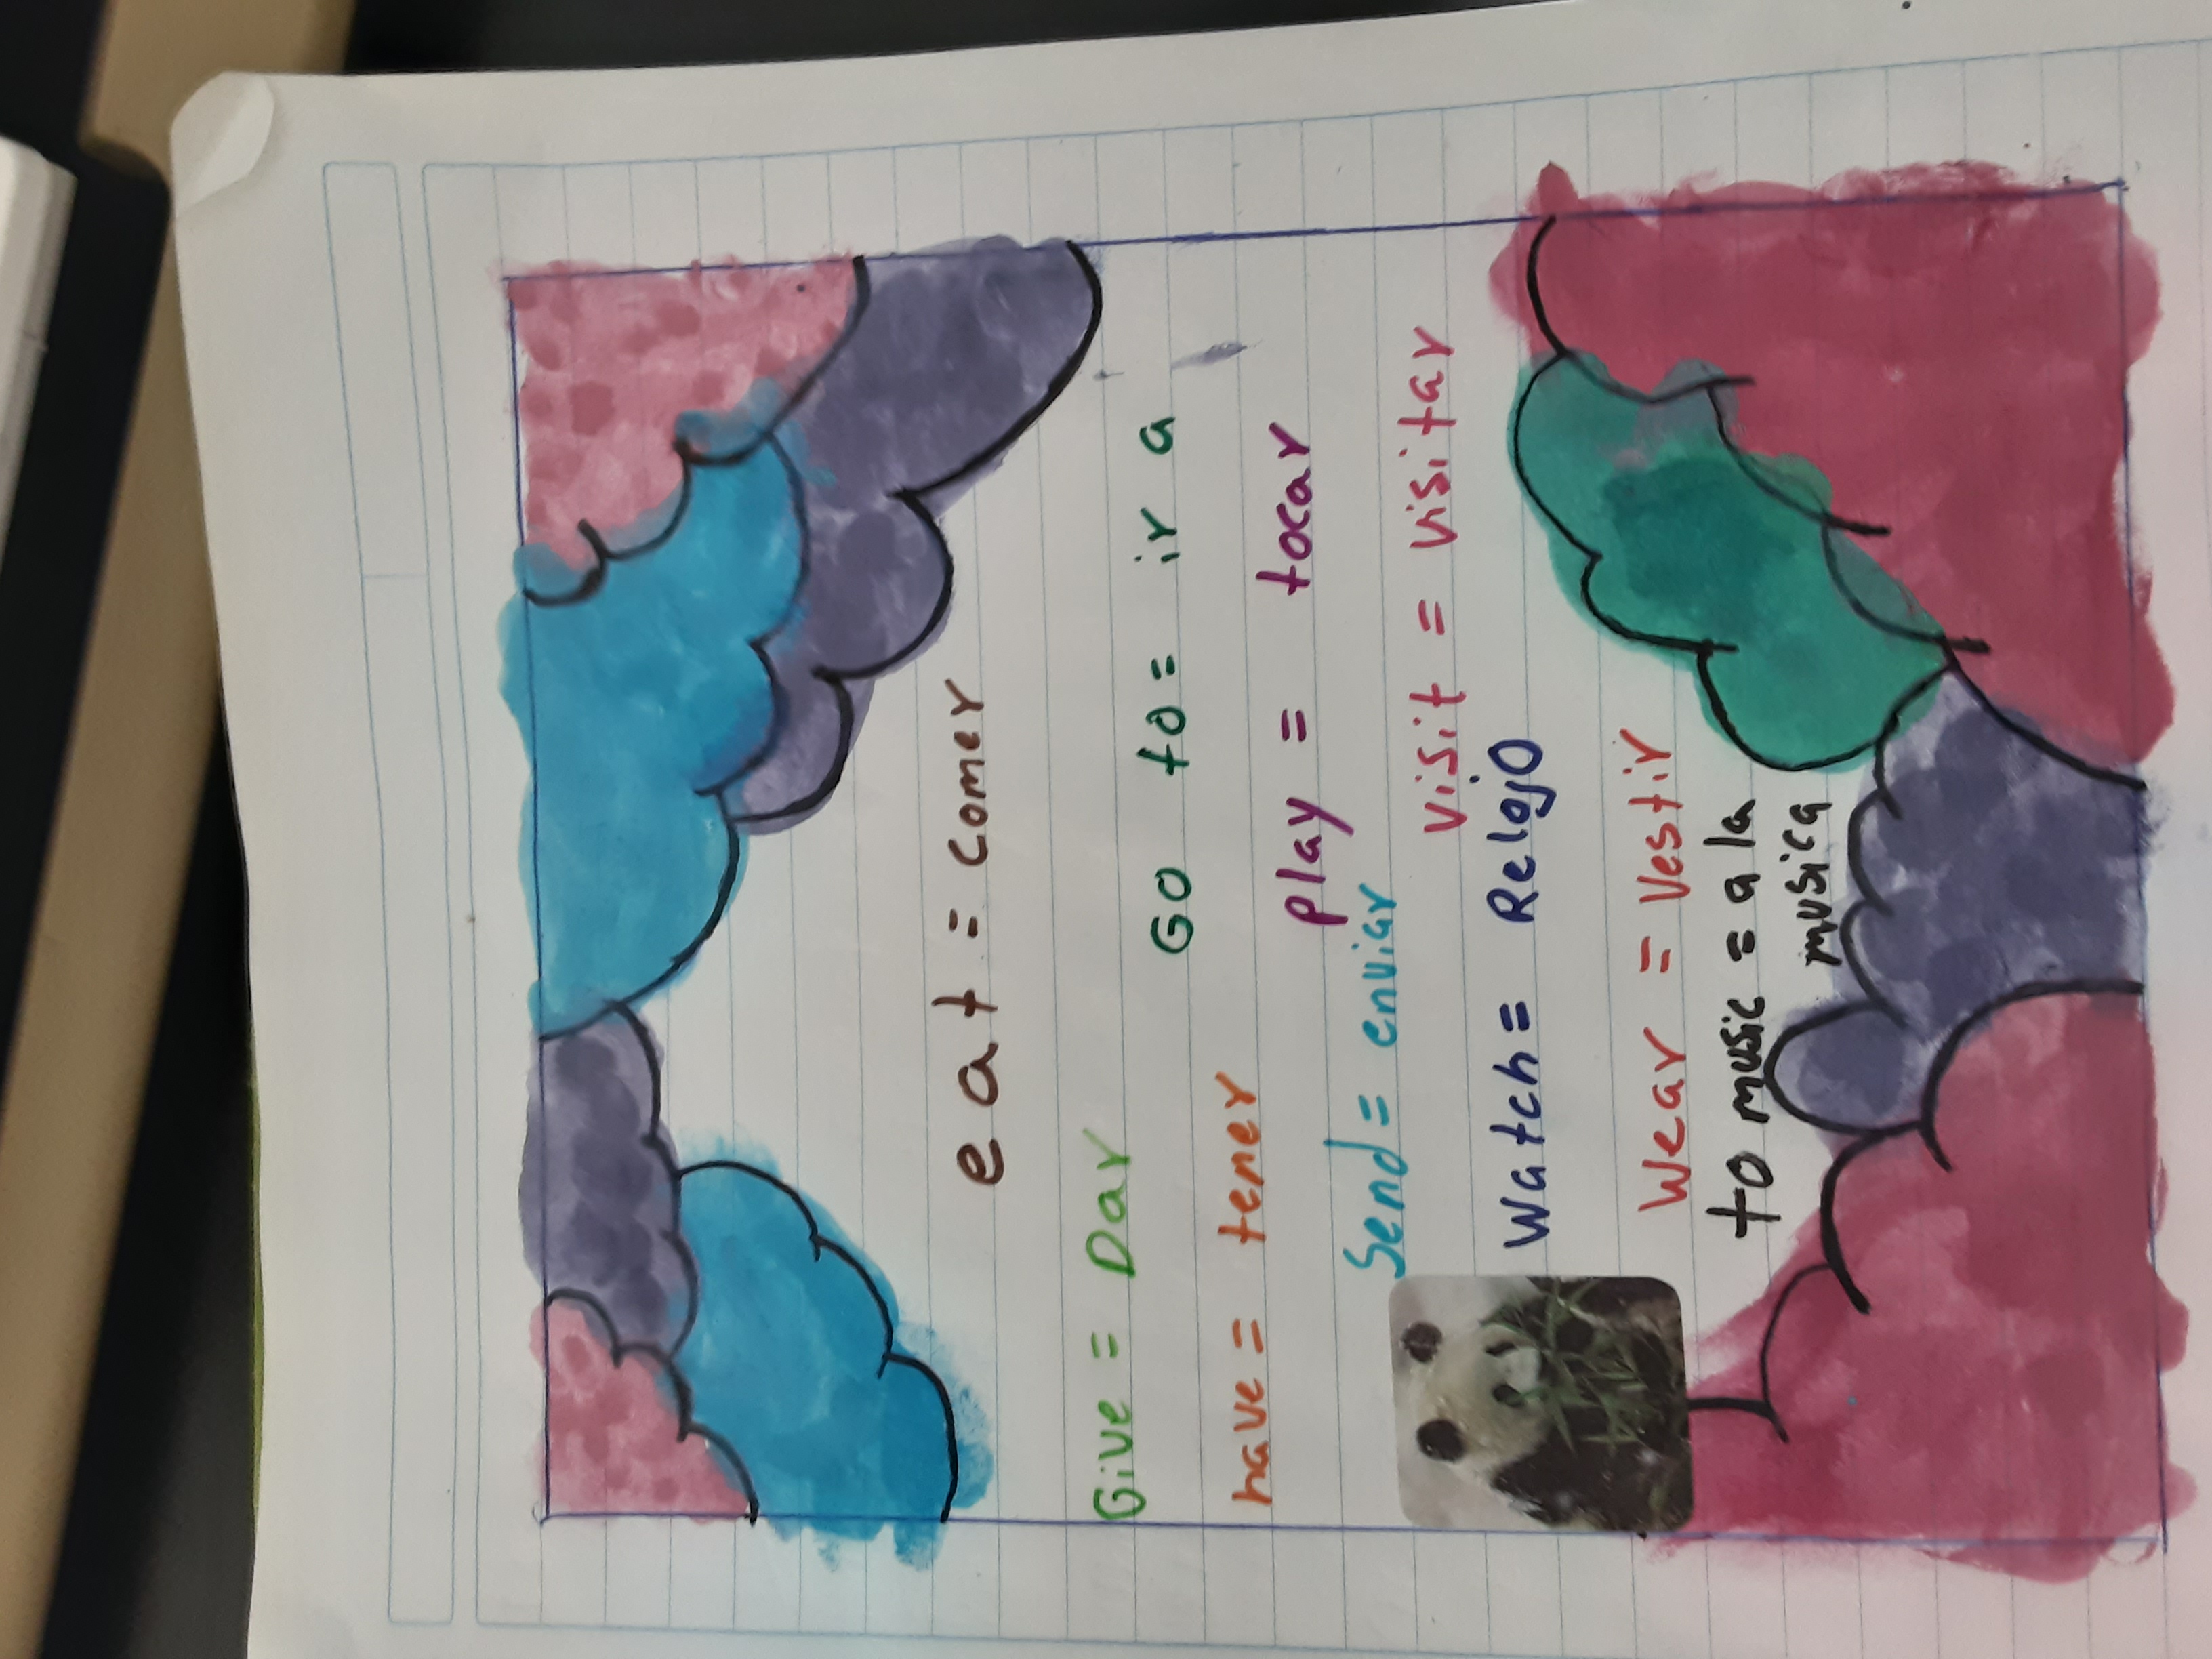 eat = comer
Give = Dar
Go to = ir a
have = tener
Play = tocar
Send = enviar
visit = visitar
Watch = RelojO
Wear = Vestir
to music = a la
musica